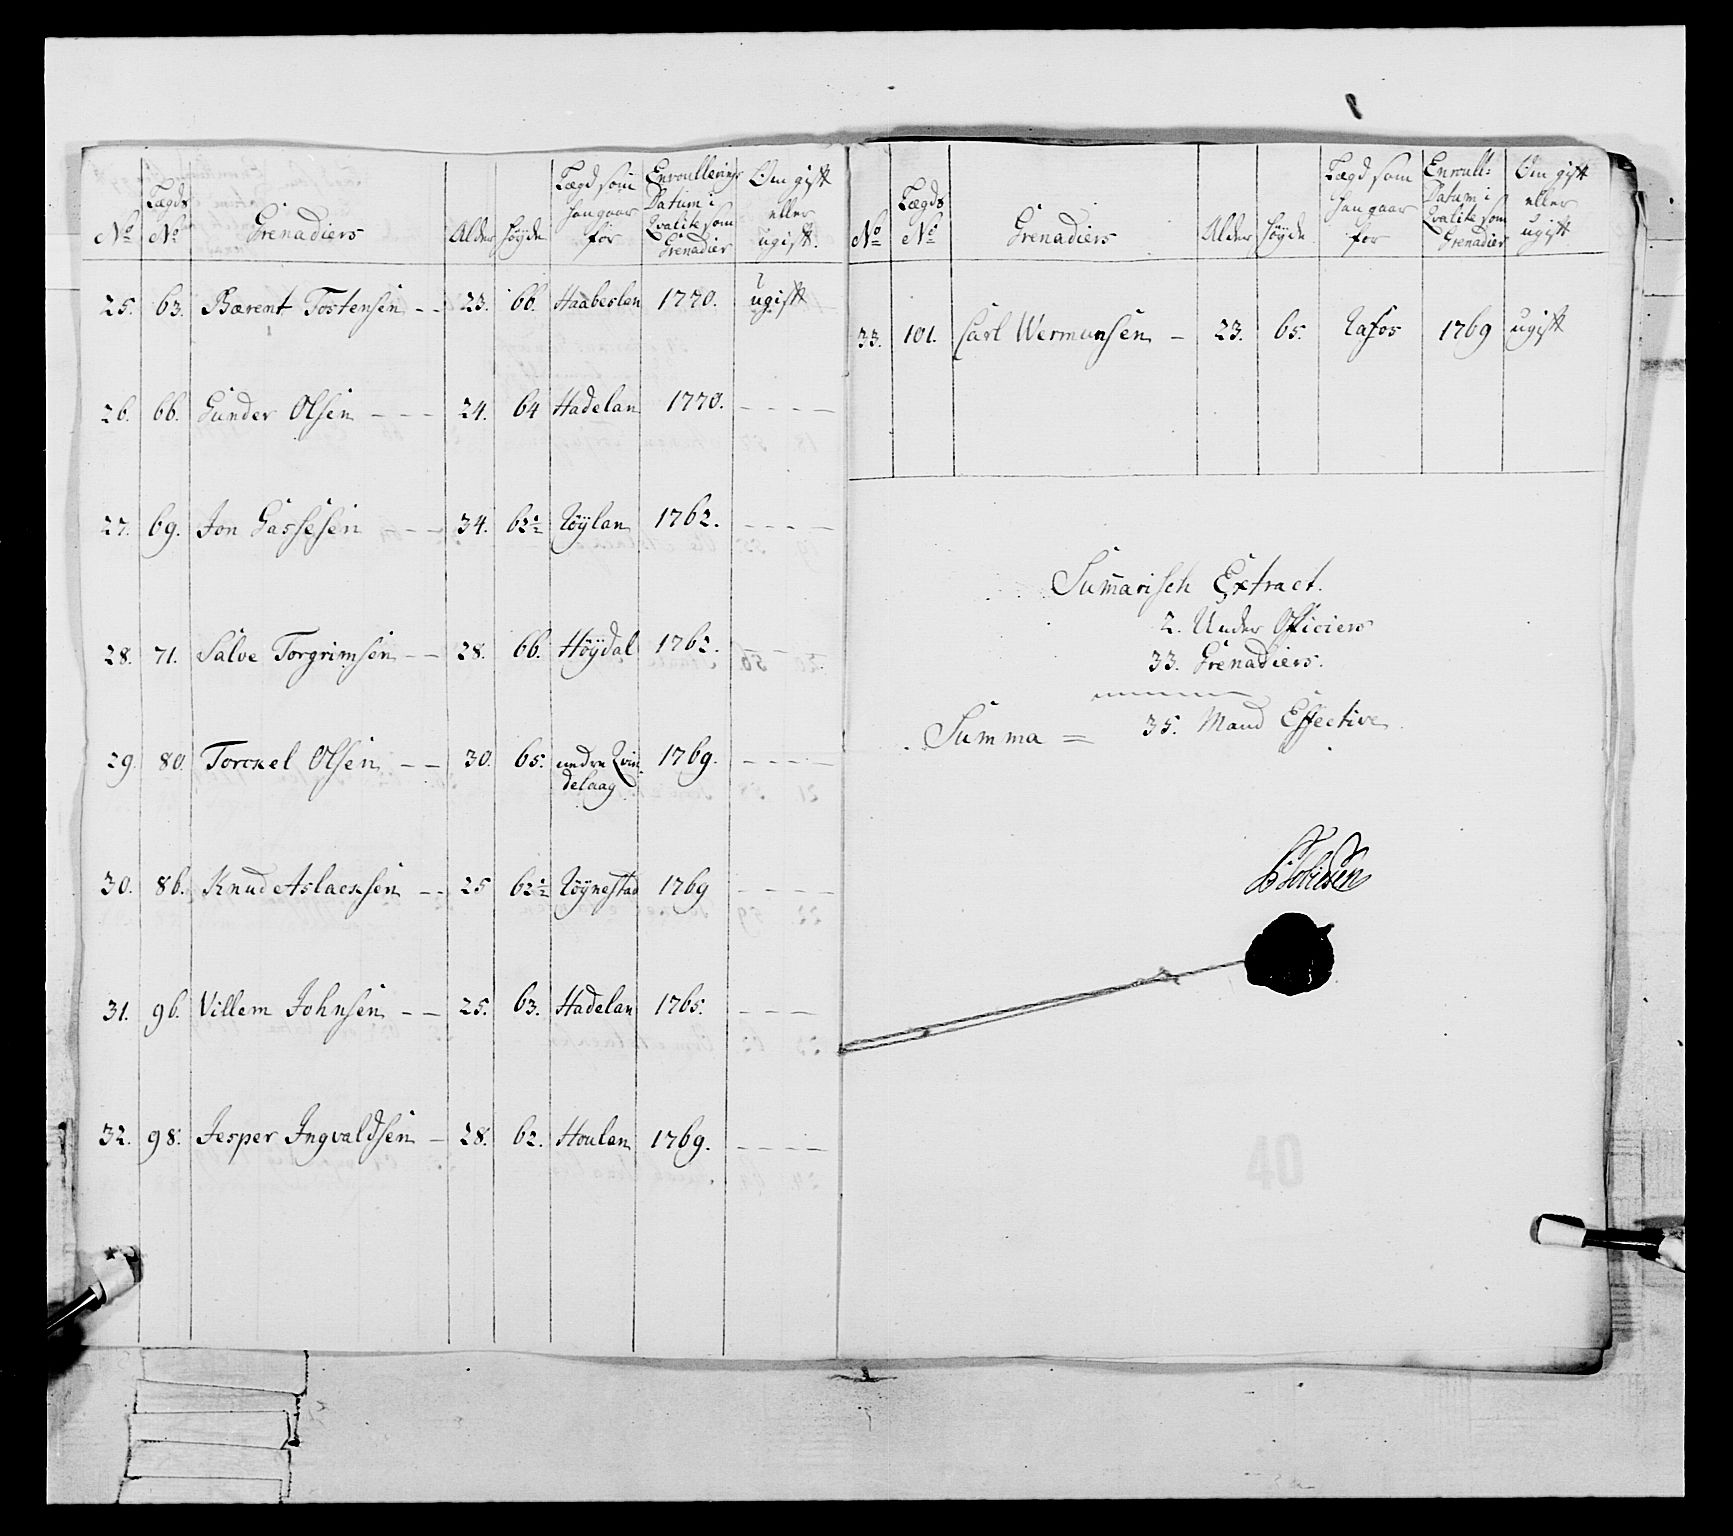 No Lægds No Grenadiers Alder Høyde Lægd som han gaar for Enroullerings Datum i Qvalite som Grenadier Om gift eller ugift.
25. 63. Bærent Tostensen - - 23. 66. Haabeslan 1770. ugift
26. 66. Gunder Olsen - - - 24. 64 Hadelan 1770. - - - -
27. 69. Jon Gassesen - - 34. 62½ Røÿlan 1762. - - - -
28. 71. Salve Torgrimsen - - 28. 66. Høÿdal 1762. - -
29. 80. Torckel Olsen - - 30. 65. nedre Qvin-
delaag 1769. - - - -
30. 86. Knud Aslacksen - - 25 62½ Røÿnestad 1769 - - - -
31. 96. Villem Johnsen - - 25. 63. Hadelan 1765. - - - -
32. 98. Jesper Ingvaldsen - 28. 62. Houlan 1769. - - - -
No Lægds No Grenadiers Alder Høyde Lægd som han gaar for Enroull: Datum i Qvalite som Grenadier Om gift eller ugift
33. 101. Carl Wermunsen - 23. 65. Rafos 1769 ugift
Sum̄arisch Extract.
2. Under Officiers
33. Grenadiers.
Summa = 35. Mand Effective
40